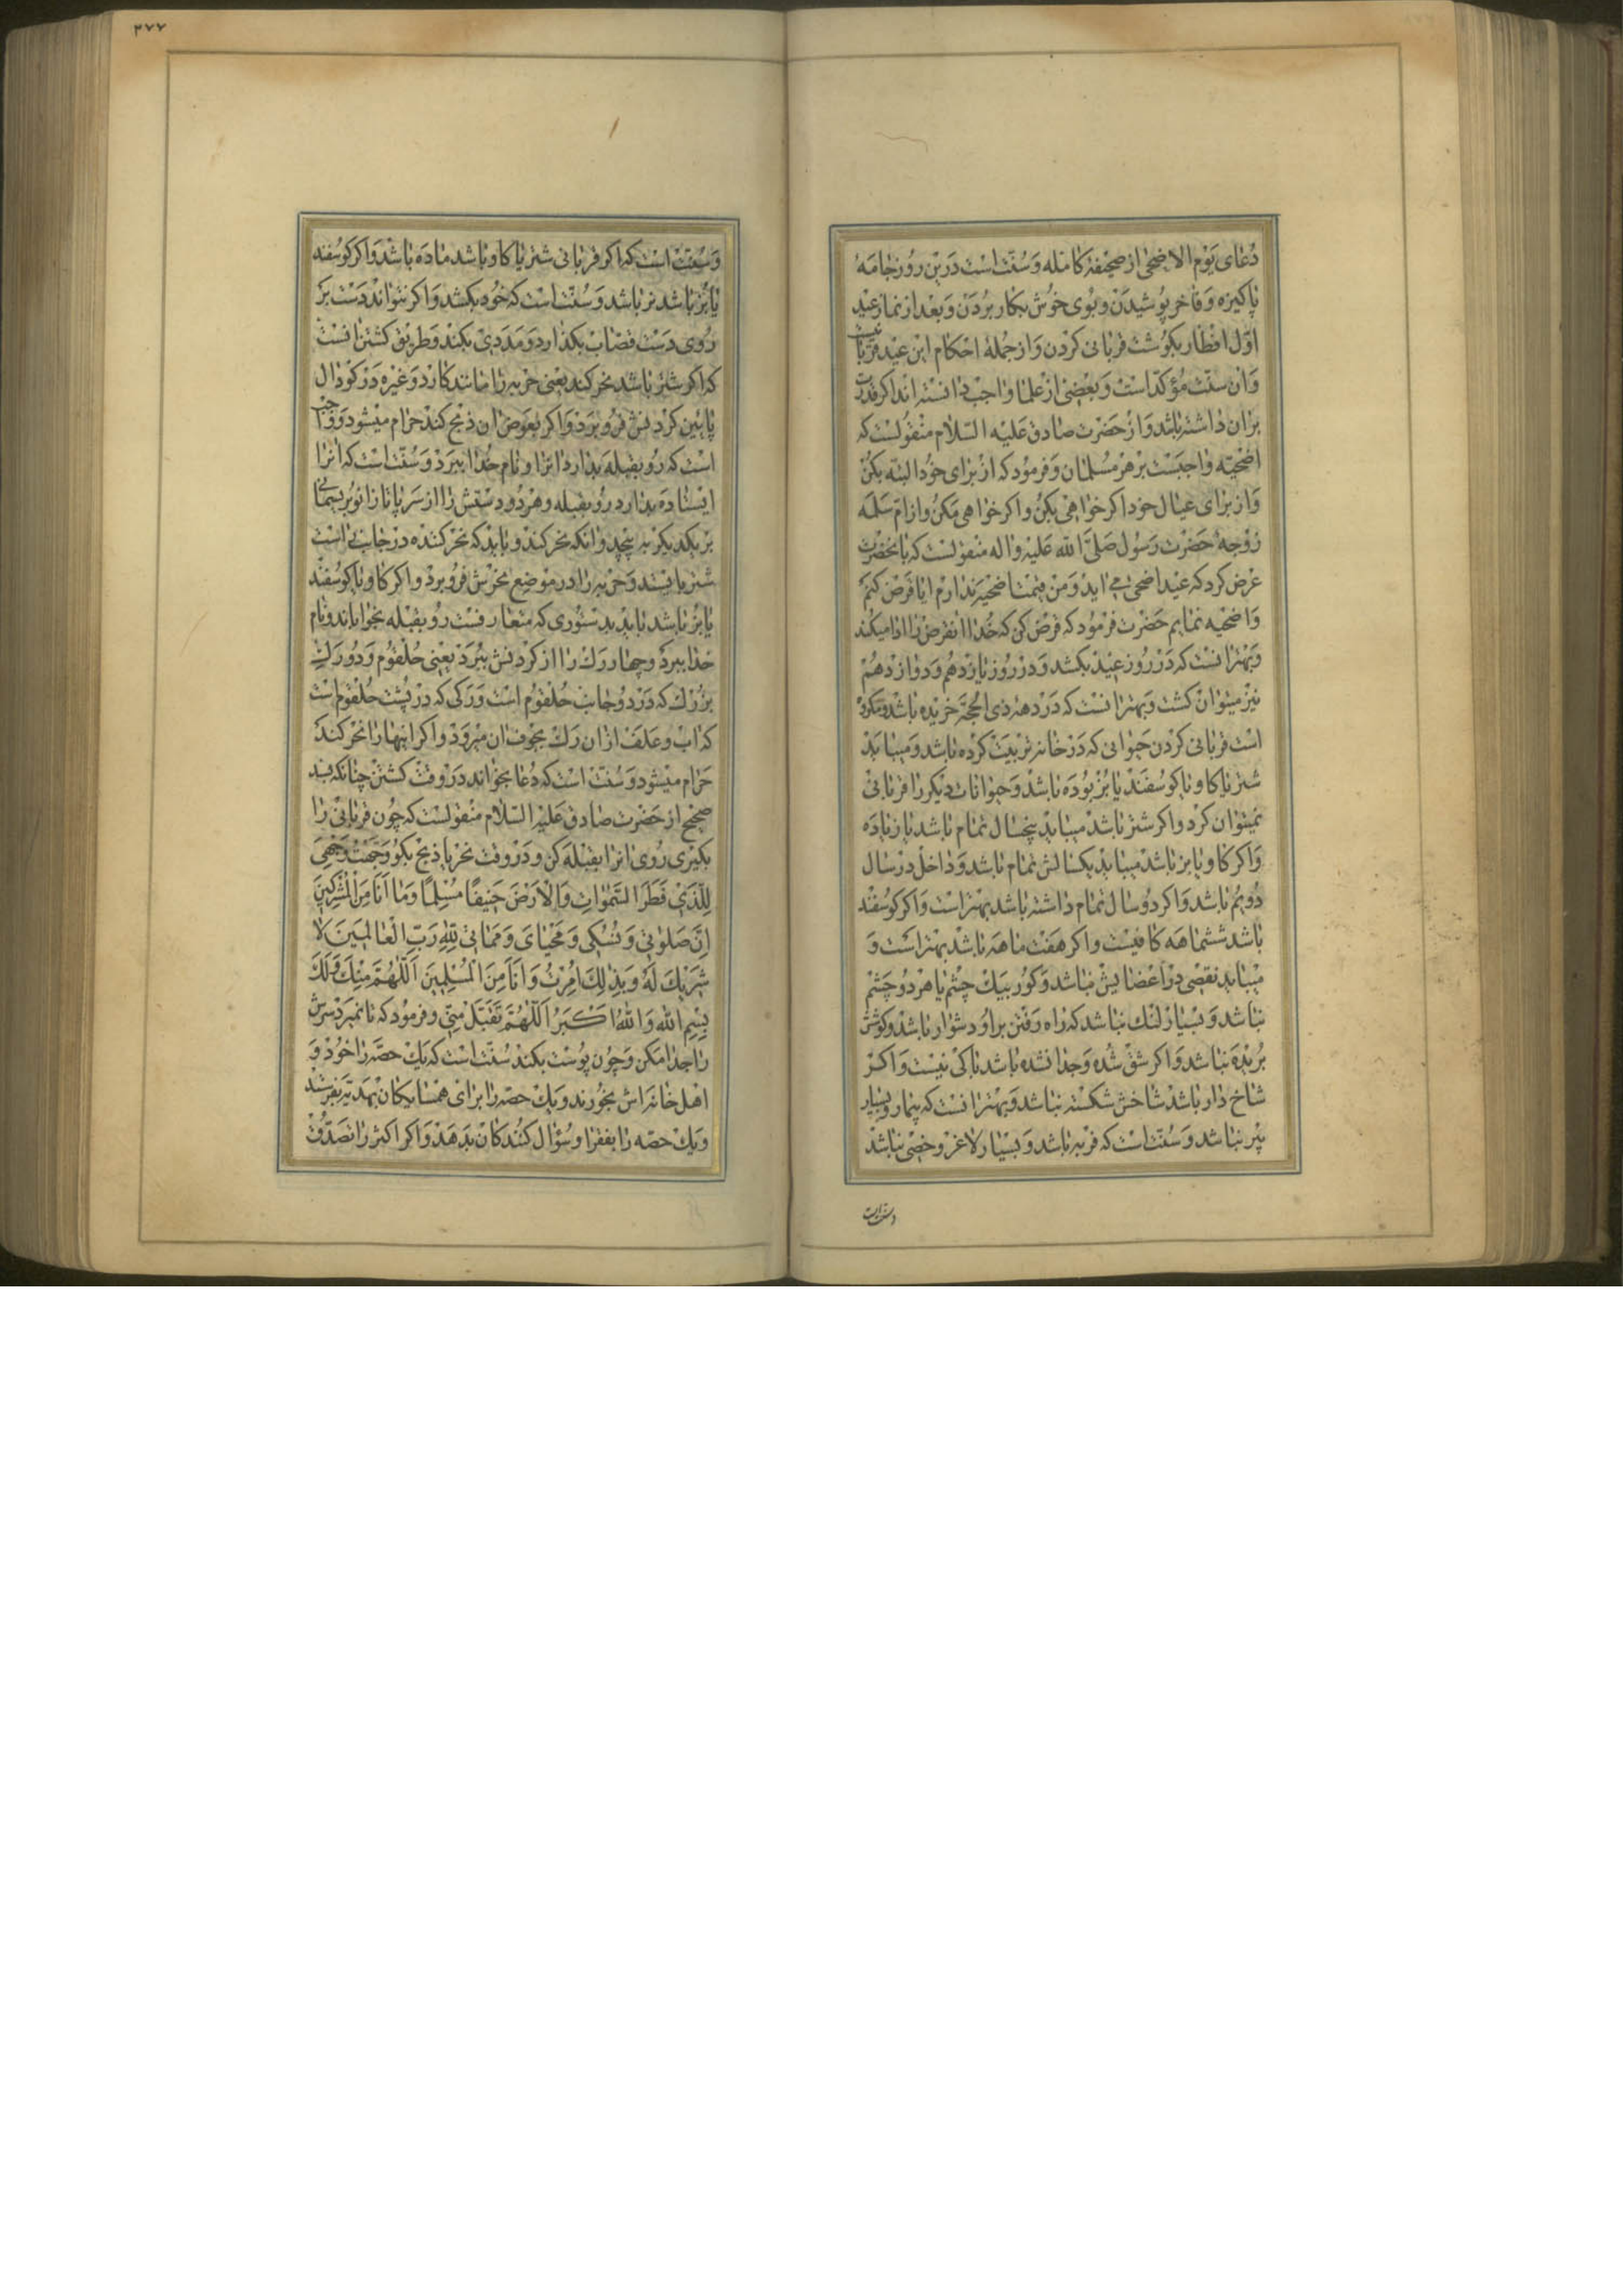 دُعای یَوْم الاضحی از صحیفهٔ کامله وَ سُنّت است دَرین روز جامهٔ
پاکیزه وَ فاخر پوشیدن و بوی خوش بکار بُردن وَ بعد از نماز عید
اوّل افطار بکوشت قربانی کردن وَ از جُمله احکام این عید قربانیست
وَ ان سنّت مؤکّد است وَ بعضی از علما واجب دانسته اند اکر قدرت
بر ان داشته باشد وَ از حَضرت صادق عَلیْه السّلام منقولست که
اضحیّه واجبست بر هر مُسلمان وَ فرمود که از برای خود البته بکن
وَ از برای عیال خود اکر خواهی بکن و اکر خواهی مکن و از امّ سَلَمه
زوجهٔ حَضرت رَسول صَلّی الله عَلیْه و اله منقولست که بانحضرت
عَرض کرد که عید اضحی می اید وَ من قیمت اضحیّه ندارم ایا قرض کنم
وَ اضحیه نمایم حَضرت فرمود که قرض کن که خُدا ان قرض را ادا میکند
وَ بهتر انست که دَر روز عید بکشد وَ در روز یازدهم وَ دوازدهم
نیز میتوان کشت وَ بهتر انست که دَر دههٔ ذی الحجّه خریده باشد و مکروه
است قربانی کردن حیوانی که دَر خانه تربیت کرده باشد وَ میباید
شتر یا کاو یا کوسفند یا بُز بُوده باشد وَ حیوانات دیکر را قربانی
نمیتوان کرد و اکر شتر باشد میباید پنجسال تمام باشد یا زیاده
وَ اکر کاو یا بز باشد میباید یکسالش تمام باشد وَ داخل در سال
دُویُم باشد وَ اکر دُو سال تمام داشته باشد بهتر است وَ اکر کوسفند
باشد ششماهه کافیست و اکر هفت ماهه باشد بهتر است وَ
میباید نقصی دَر اعضایش نباشد وَ کور بیک چشم یا هر دُو چشم
نباشد وَ بسیار لنک نباشد که راه رفتن بر او دشوار باشد و کوشش
بُریده نباشد وَ اکر شقّ شده وَ جدا نشده باشد باکی نیست وَ اکر
شاخ دار باشد شاخش شکسته نباشد وَ بهتر انست که بیمار و بسیار
پیر نباشد وَ سنّت است که فربه باشد وَ بسیار لاغر و خصی نباشد
و سنّت است
۳۷۷
وَ سُنّت است که اکر قربانی شتر یا کاو باشد ماده باشد وَ اکر کوسفند
یا بُز باشد نر باشد وَ سُنّت است که خود بکشد وَ اکر نتواند دَست بر
روی دَست قصّاب بکذارد وَ مَدَدی بکند وَ طریق کشتن انست
که اکر شتر باشد نحر کند یعنی حربه را مانند کارد وَ غیره دَر کودال
پایین کردنش فرو برد وَ اکر بعوض ان ذبح کند حرام میشود وَ واجب
است که رو بقبله بدارد انرا و نام خدا ببرد وَ سُنّت است که انرا
ایستاده بدارد رو بقبله و هر دُو دستش را از سر پا تا زانو بریسمانی
بر یکدیکر به پیچد وانکه نحر کند و باید که نحر کننده در جانب راست
شتر بایستد وَ حربه را در موضع نحرش فرو برد و اکر کاو یا کوسفند
یا بُز باشد باید بدستوری که متعارفست رو بقبله بخواباند و نام
خدا ببرد وَ چهار رک را از کردنش ببُرد یعنی حُلقوم وَ دُو رک
بزرک که دَر دُو جانب حُلقوم است وَ رکی که دَر پشت حُلقوم است
که اب و علف از ان رک بجوف ان میرود و اکر اینها را نحر کند
حَرام میشود وَ سُنّت است که دُعا بخواند دَر وقت کشتن چنانکه بسند
صحیح از حَضرت صادق عَلیْه السّلام منقولست که چون قربانی را
بکیری روی انرا بقبله کن و دَر وقت نحر یا ذبح بکو وَجَّهْتُ وَجْهِیَ
لِلَّذی فَطَرَ السَّمٰوٰاتِ وَ الْاَرْضَ حَنیفًا مُسْلِمًا وَ مٰا اَنَا مِنَ الْمُشْرِکینَ
اِنَّ صَلوٰتی وَ نُسُکی وَ مَحْیٰایَ وَ مَمٰاتی لِلّٰهِ رَبِّ الْعٰالَمینَ لٰا
شَریکَ لَهُ وَ بِذٰلِکَ اُمِرْتُ وَ اَنَا مِنَ الْمُسْلِمینَ اَللّٰهُمَّ مِنْکَ وَ لَکَ
بِسْمِ اللهِ وَ اللهُ اَکْبَرُ اَللّٰهُمَّ تَقَبَّلْ مِنّی و فرمود که تا نمیرد سرش
را جدا مکن وَ چون پوست بکند سُنّت است که یک حصّه را خود وَ
اهل خانه اش بخورند وَ یک حصّه را برای همسایکان بهدیه بفرستد
وَ یک حصّه را بفقرا و سُؤال کنندکان بدهد وَ اکر اکثر را تصدّق